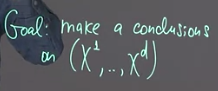 Goal: make a conclusions
on (X¹,..,X^d)